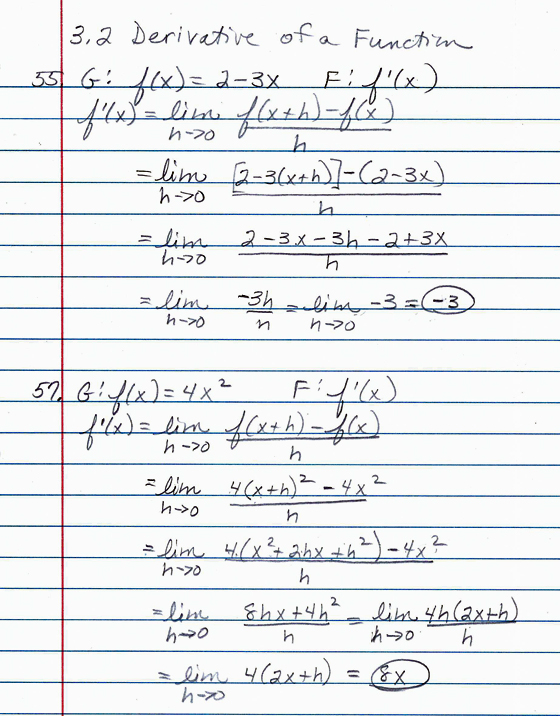 3.2 Derivative of a Function
55. G: f(x) = 2-3x F: f'(x)
f'(x) = lim h→0 f(x+h)-f(x) / h
= lim h→0 [2-3(x+h)]-(2-3x) / h
= lim h→0 2-3x-3h-2+3x / h
= lim h→0 -3h / h = lim h→0 -3 = -3
57. G: f(x) = 4x² F: f'(x)
f'(x) = lim h→0 f(x+h)-f(x) / h
= lim h→0 4(x+h)² - 4x² / h
= lim h→0 4(x²+2hx+h²)-4x² / h
= lim h→0 8hx+4h² / h = lim h→0 4h(2x+h) / h
= lim h→0 4(2x+h) = 8x